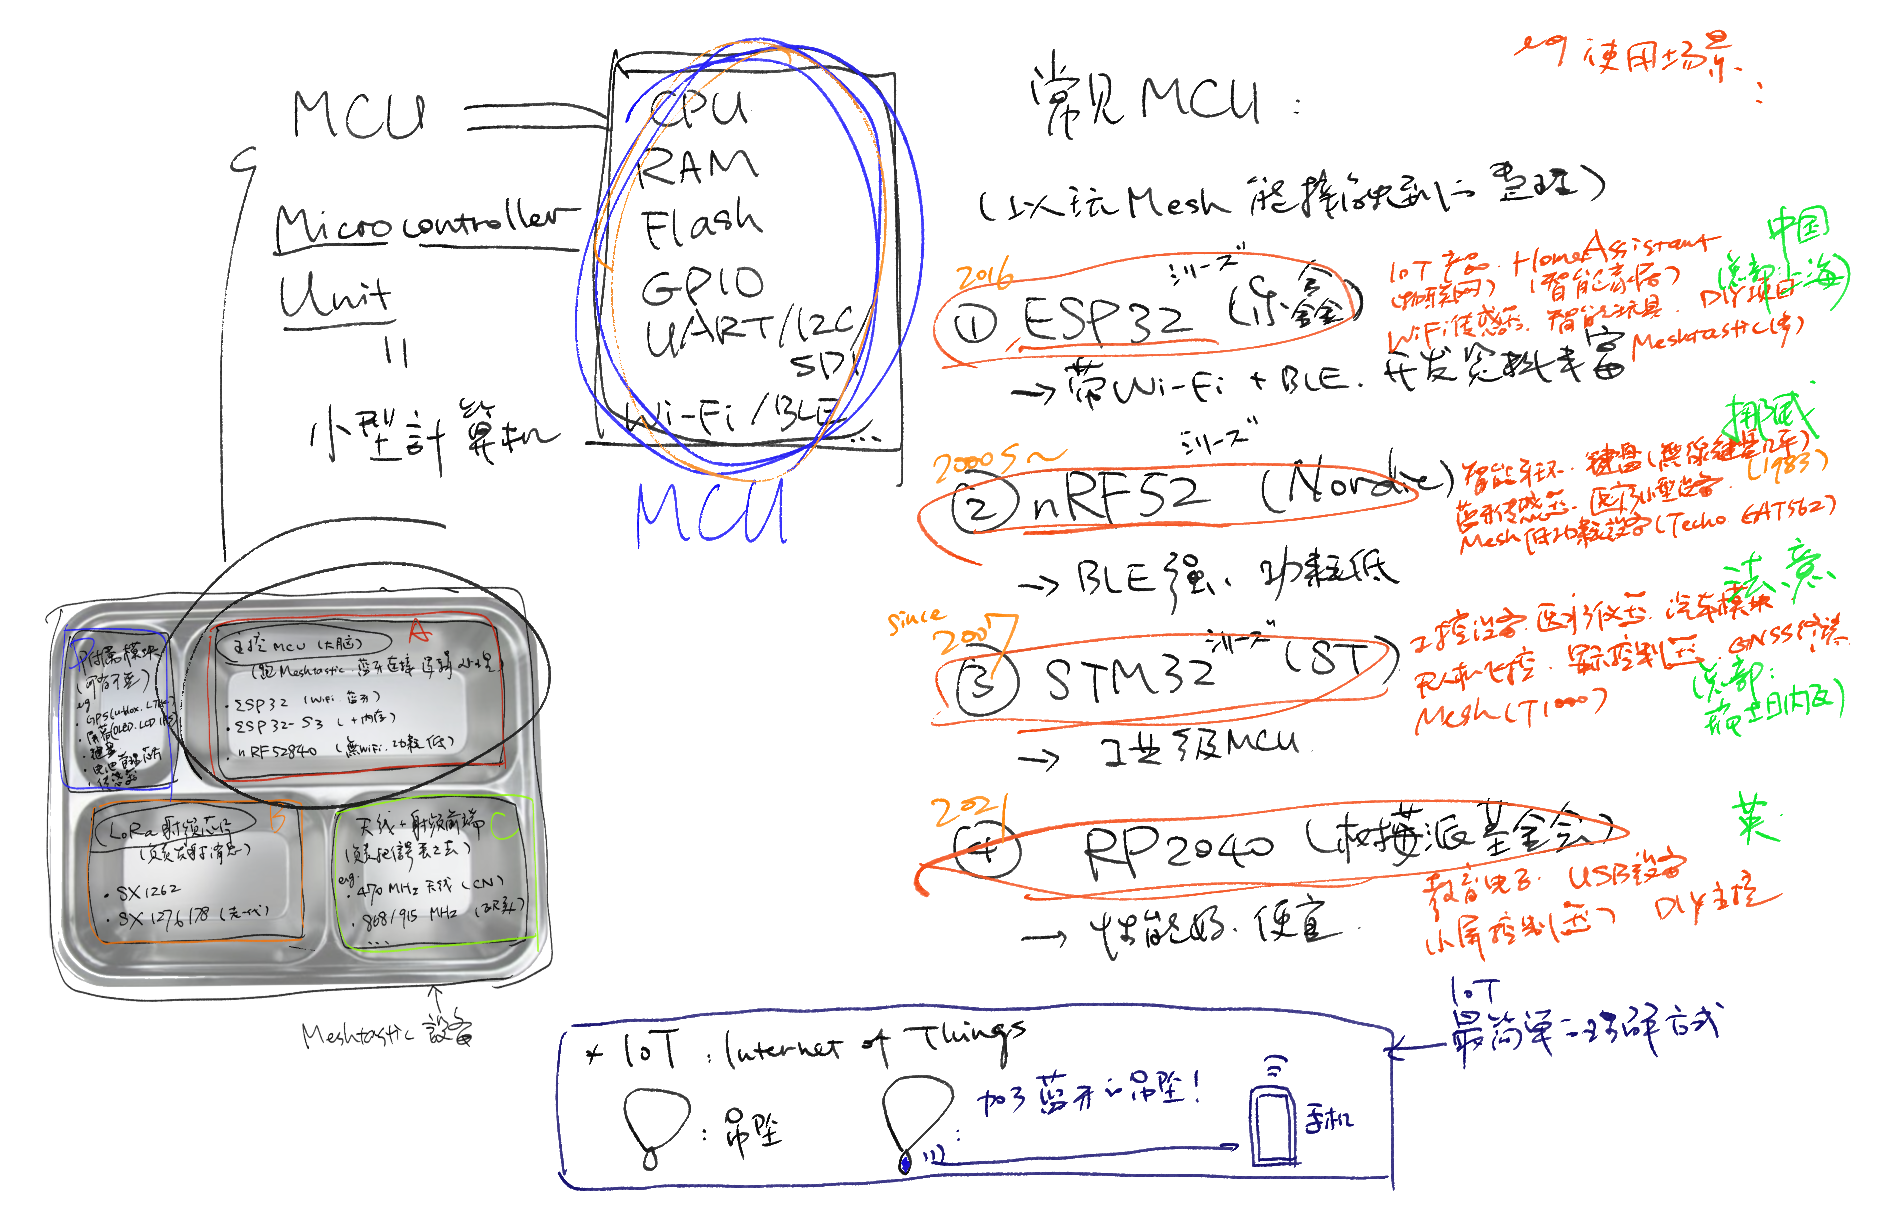 MCU
Microcontroller
Unit
小型計算机
CPU
RAM
Flash
GPIO
UART/I2C/
SPI
Wi-Fi/BLE
...
MCU
eg 使用场景:
常见MCU:
(以玩Mesh能接触到的整理)
2016
① ESP32 シリーズ (乐鑫)
→ 带Wi-Fi + BLE. 开发资料丰富
IoT产品. HomeAssistant
(物联网) (智能家居)
WiFi传感器. 智能玩具. DIY项目
Meshtastic(多)
中国
(总部上海)
2000s~
② nRF52 シリーズ (Nordic)
→ BLE强、功耗低
智能手环. 键盘(無線鍵鼠几年)
蓝牙传感器. 医疗小型设备.
Mesh低功耗設备(Techo EAT562)
挪威
(1983)
since
2007
③ STM32 シリーズ (ST)
→ 工业级MCU
工控设备. 医疗仪器. 汽车模块
无人机飞控. 显示控制器. GNSS终端
Mesh(T1000)
法、意
(总部:
瑞士日内瓦)
2021
④ RP2040 (树莓派基金会)
→ 性能好. 便宜.
教育电子. USB設备
小屏控制(器) DIY主控
英
D
附属模块
(可有不要)
eg.
· GPS(u-blox. L76K)
· 屏幕(OLED. LCD IPS)
· 键盘
· 电池管理芯片
· 传感器
A
主控MCU(大脑)
(跑Meshtastic 蓝牙连接 逻辑处理)
· ESP32 (WiFi 蓝牙)
· ESP32-S3 (+内存)
· nRF52840 (無WiFi. 功耗低)
B
LoRa射频芯片
(负责发射消息)
· SX1262
· SX1276/78 (老一代)
C
天线+射频前端
(负责把信号丢出去)
eg.
· 470 MHz 天线 (CN)
· 868/915 MHz (欧美)
...
Meshtastic設备
* IoT: Internet of Things
: 吊坠
: 加了蓝牙的吊坠!
手机
IoT
最简单的理解方式